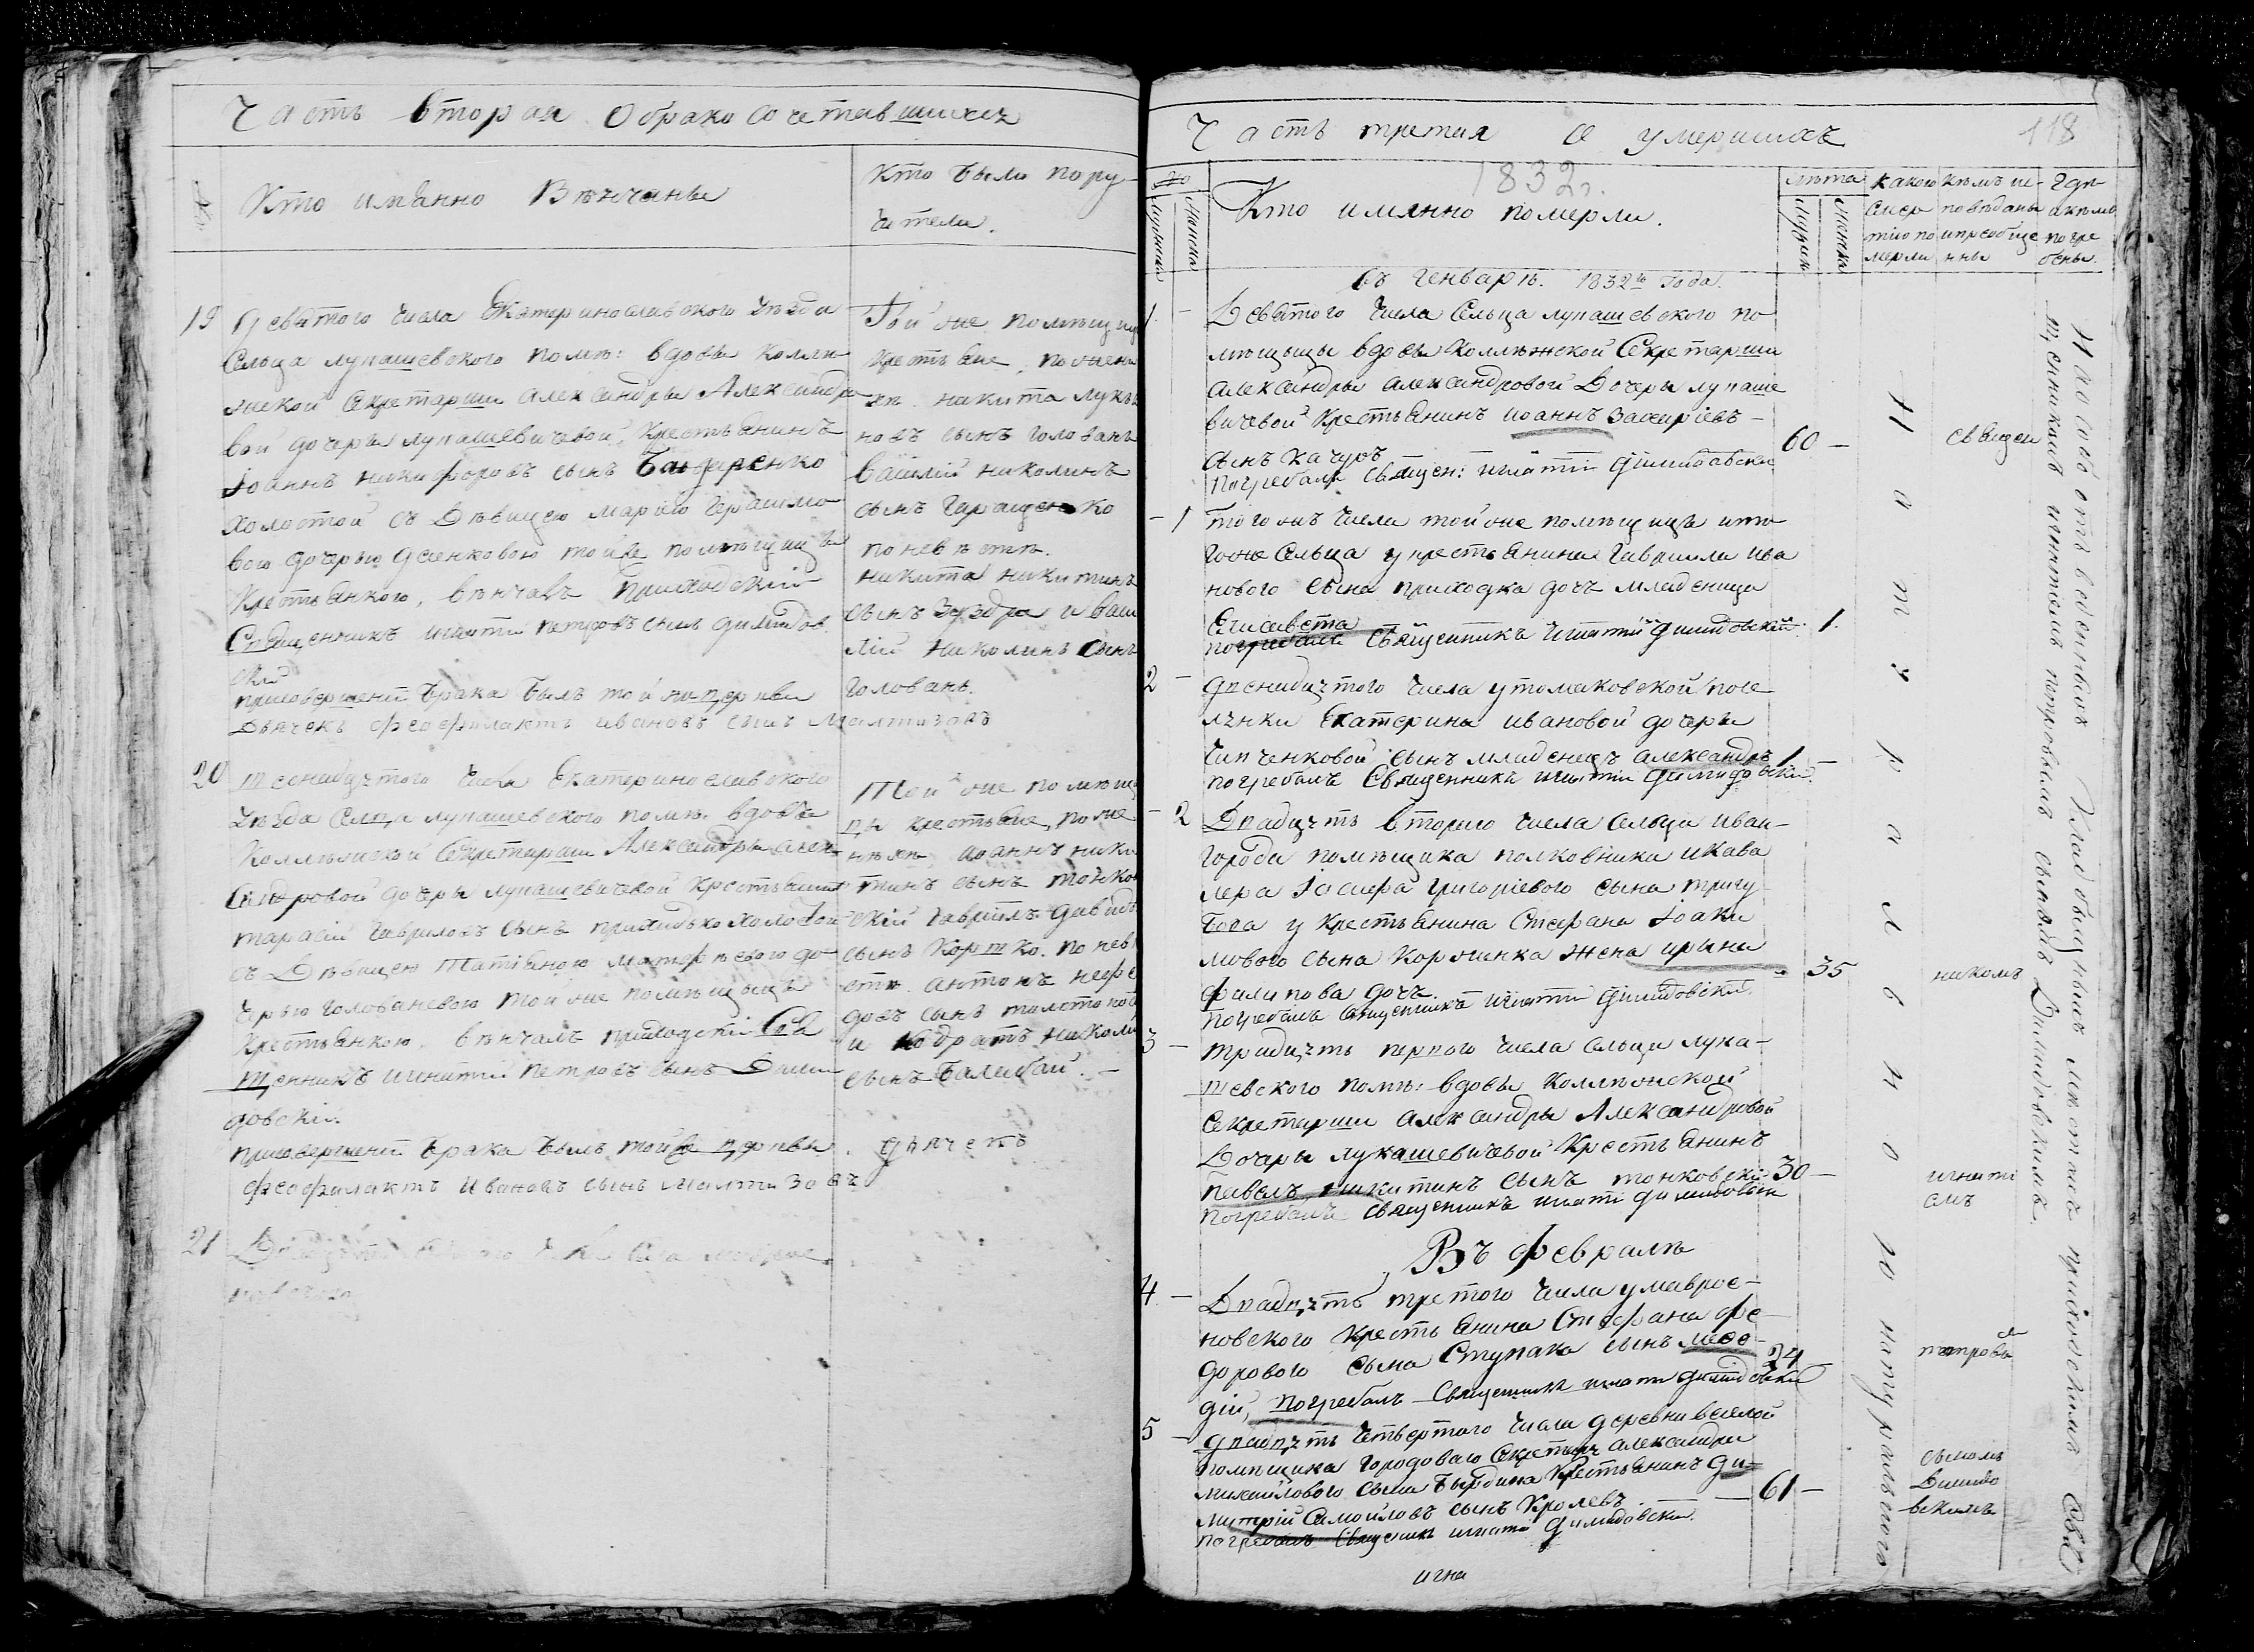 Часть вторая о бракосочетавшихся
№
Кто имянно Венчаны
Кто были пору-
чители.
19
Девятого числа Екатеринославского уезда
Сельца лукашевского поме: вдовы коллѣ-
жской Секретарши александры Александро-
вой дочеры лукашевичевой, крестьянинъ
Іоаннъ никифоровъ сынъ
холостой съ Дѣвицею Маріею Герасимо
вою дочерью денковою тойже помѣщицы
Крестьянкою, вѣнчалъ Приходскій
Священникъ игнатій петровъ сынъ димидов
скій
присовершеніи брака былъ той церкви
Дьячекъ феофилактъ ивановъ сынъ Малтизовъ
Той же помѣщицы
крестьяне, по жени
хѣ. никита лукья
новъ сынъ голованъ
василій николинъ
сынъ геращенко
по невѣстѣ.
никита никитинъ
сынъ зуздра и васи
лій николинъ сынъ
голованъ.
20
шеснадцтого числа Екатеринославского
уѣзда Селца лукашевского помѣ: вдовы
Коллѣжской Секретарши Александры алек-
сандровой дочеры лукашевичевой крестьянинъ
тарасій гавриловъ сынъ приходько холостой
съ Дѣвицею Татіаною матфѣевою до-
черью головановою той же помѣщицы
Крестьянкою. вѣнчалъ приходскій Свя
щенникъ игнатій петровъ сынъ Дими
довскій.
присовершеніи брака былъ тойже церквы. дьячекъ
феофилактъ Ивановъ сынъ малтизовъ
Той же помѣщи
цы крестьяне, по же
нихѣ иоаннъ ники
тинъ сынъ тонков
скій гавріилъ давидо
сынъ Коршко. по невѣ
стѣ. антонъ нефе
довъ сынъ толстоно
и кодратъ николи
сынъ Балабай. –
21
Часть третия о умершихъ
118
1832 г.
№
Мужеска
Женска
Кто имянно померли.
лѣта
Мужск
Женска
какою
смер
тію по
мерли
кѣмъ ис-
повѣданы
ипреобще
нны
Где
и кѣмъ
погре
бены.
въ генварѣ. 1832го года.
1 –
Девятого числа Сельца лукашевского по
мѣщыцы вдовы Коллѣжской Секретарши
александры александровой Дочеры лукаше
вичевой Крестьянинъ иоаннъ захаріевъ –
сынъ качуръ
60 –
погребалъ Священ: игнатій димидовскій
– 1
того жъ числа той же помѣщицы ито
гоже Сельца у крестьянина гавриила ива
нового сына приходка дочъ младеница
Елисавета
1.
погребалъ Священникъ игнатій димидовскій.
2 –
двенадцтого числа у томаковской посе
лянки Екатерины ивановой дочеры
Чипченковой сынъ младенецъ александръ
1 –
погребалъ Священникъ игнатій димидовскій.
– 2
Двадцять второго числа сельца иван-
города помѣщика полковника икава
лера Іосифа григоріевого сына тригу
бова у крестьянина Стефана іоаки
мового сына Корженка жена ирина
филипова дочъ.
35
погребалъ священникъ игнатій димидовскій.
3 –
тридцять первого числа сельца лука-
шевского помѣ: вдовы Коллѣжской
Секретарши александры Александровой
Дочеры лукашевичевой Крестьянинъ
павелъ никитинъ сынъ тонковскій
30 –
погребалъ священникъ игнатій димидовскій
Въ февралѣ
4 –
Двадцять третого числа у маврос-
новского крестьянина Стефана фе-
дорового сына Ступака сынъ мефо-
дій,
24
погребалъ Священникъ игнатій димидовскій
5 –
двадцять четвертого числа деревни веселой
помѣщика городоваго Секретаря александра
михайлового сына бырдина Крестьянинъ ди-
митрій Самойловъ сынъ Кролевъ. –
61 –
погребалъ Священникъ игнатій димидовскій.
игна
Натурално
натуралного
священ
никомъ
игнаті
емъ
петровы
сыномъ
Димидо
вскимъ
На особо отведенныхъ Кладбищныхъ местахъ приходскимъ Свя
щенникомъ игнатіемъ петровымъ сыномъ Димидовскимъ